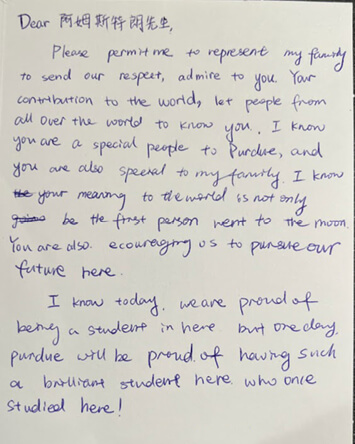 Dear 阿姆斯特朗先生,
Please permit me to represent my family
to send our respect, admire to you. Your
contribution to the world, let people from
all over the world to know you. I know
you are a special people to Purdue, and
you are also special to my family. I know
the your meaning to the world is not only
be the first person went to the moon.
You are also. ecouraging us to pursue our
future here.
I know today, we are proud of
being a student in here but one day,
purdue will be proud of having such
a brilliant student here who once
studied here!